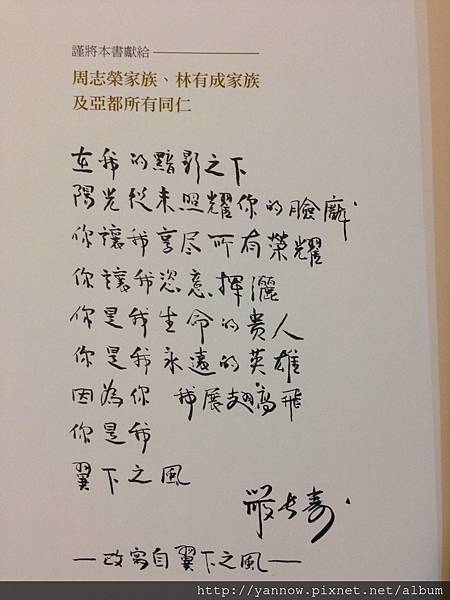 謹將本書獻給
周志榮家族、林有成家族
及亞都所有同仁
在我的黯影之下
陽光從未照耀你的臉龐
你讓我享尽所有榮耀
你讓我恣意揮灑
你是我生命的貴人
你是我永遠的英雄
因為你 我展翅高飛
你是我
翼下之風
嚴長壽
—改寫自翼下之風—
http://yannow.pixnet.net/album